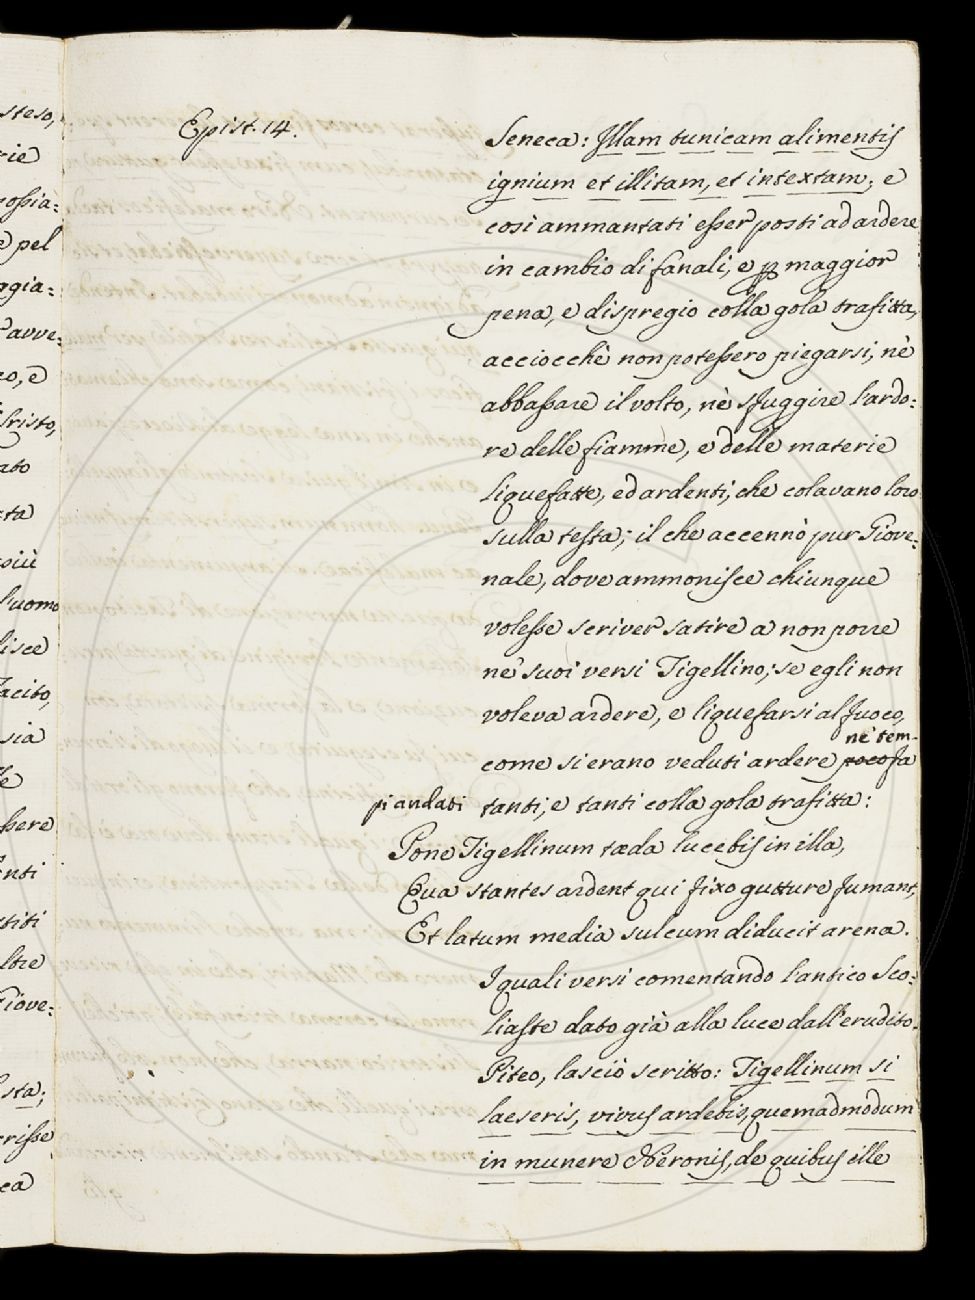 steso,
rie
possia:
e pel
aggia:
avve:
co, e
Cristo,
ato
sta
più
l'uomo
lisce
Tacito,
sia
ssere
enti
stiti
ltre
Giove:
sta;
crisse
ea
Epist. 14.
Seneca: Illam tunicam alimentis
ignium et illitam, et intextam; e
così ammantati esser posti ad ardere
in cambio di fanali, e p maggior
pena, e dispregio colla gola trafitta,
acciocchè non potessero piegarsi, nè
abbassare il volto, nè sfuggire l'ardo:
re delle fiamme, e delle materie
liquefatte, ed ardenti, che colavano loro
sulla testa; il che accennò pur Giove:
nale, dove ammonisce chiunque
volesse scriver satire a non porre
ne' suoi versi Tigellino; se egli non
voleva ardere, e liquefarsi al fuoco,
come si erano veduti ardere poco fa
ne' tem-
pi andati
tanti, e tanti colla gola trafitta:
Pone Tigellinum tæda lucebis in illa,
Qua stantes ardent qui fixo gutture fumant,
Et latum media sulcum diducit arena.
I quali versi comentando l'antico Sco:
liaste dato già alla luce dall'erudito
Piteo, lasciò scritto: Tigellinum si
laeseris, vivus ardebis, quemadmodum
in munere Neronis, de quibus ille